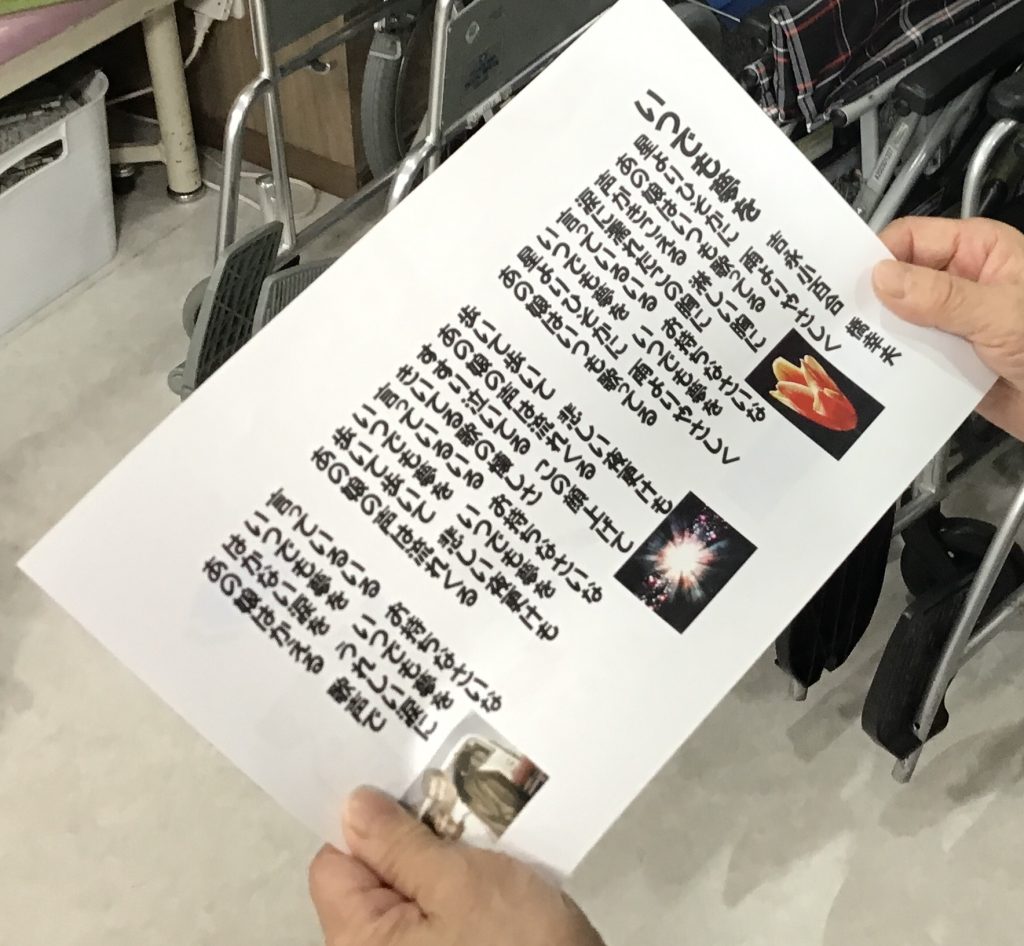 いつでも夢を
吉永小百合　橋幸夫
星よりひそかに　雨よりやさしく
あの娘はいつも歌ってる
声がきこえる　淋しい胸に
涙に濡れたこの胸に
言っているいる　お持ちなさいな
いつでも夢を　いつでも夢を
星よりひそかに　雨よりやさしく
あの娘はいつも歌ってる
歩いて歩いて　悲しい夜更けも
あの娘の声は流れくる
すすり泣いてる　この顔上げて
きいてる歌の懐しさ
言っているいる　お持ちなさいな
いつでも夢を　いつでも夢を
歩いて歩いて　悲しい夜更けも
あの娘の声は流れくる
言っているいる　お持ちなさいな
いつでも夢を　いつでも夢を
はかない涙を　うれしい涙に
あの娘はかえる　歌声で